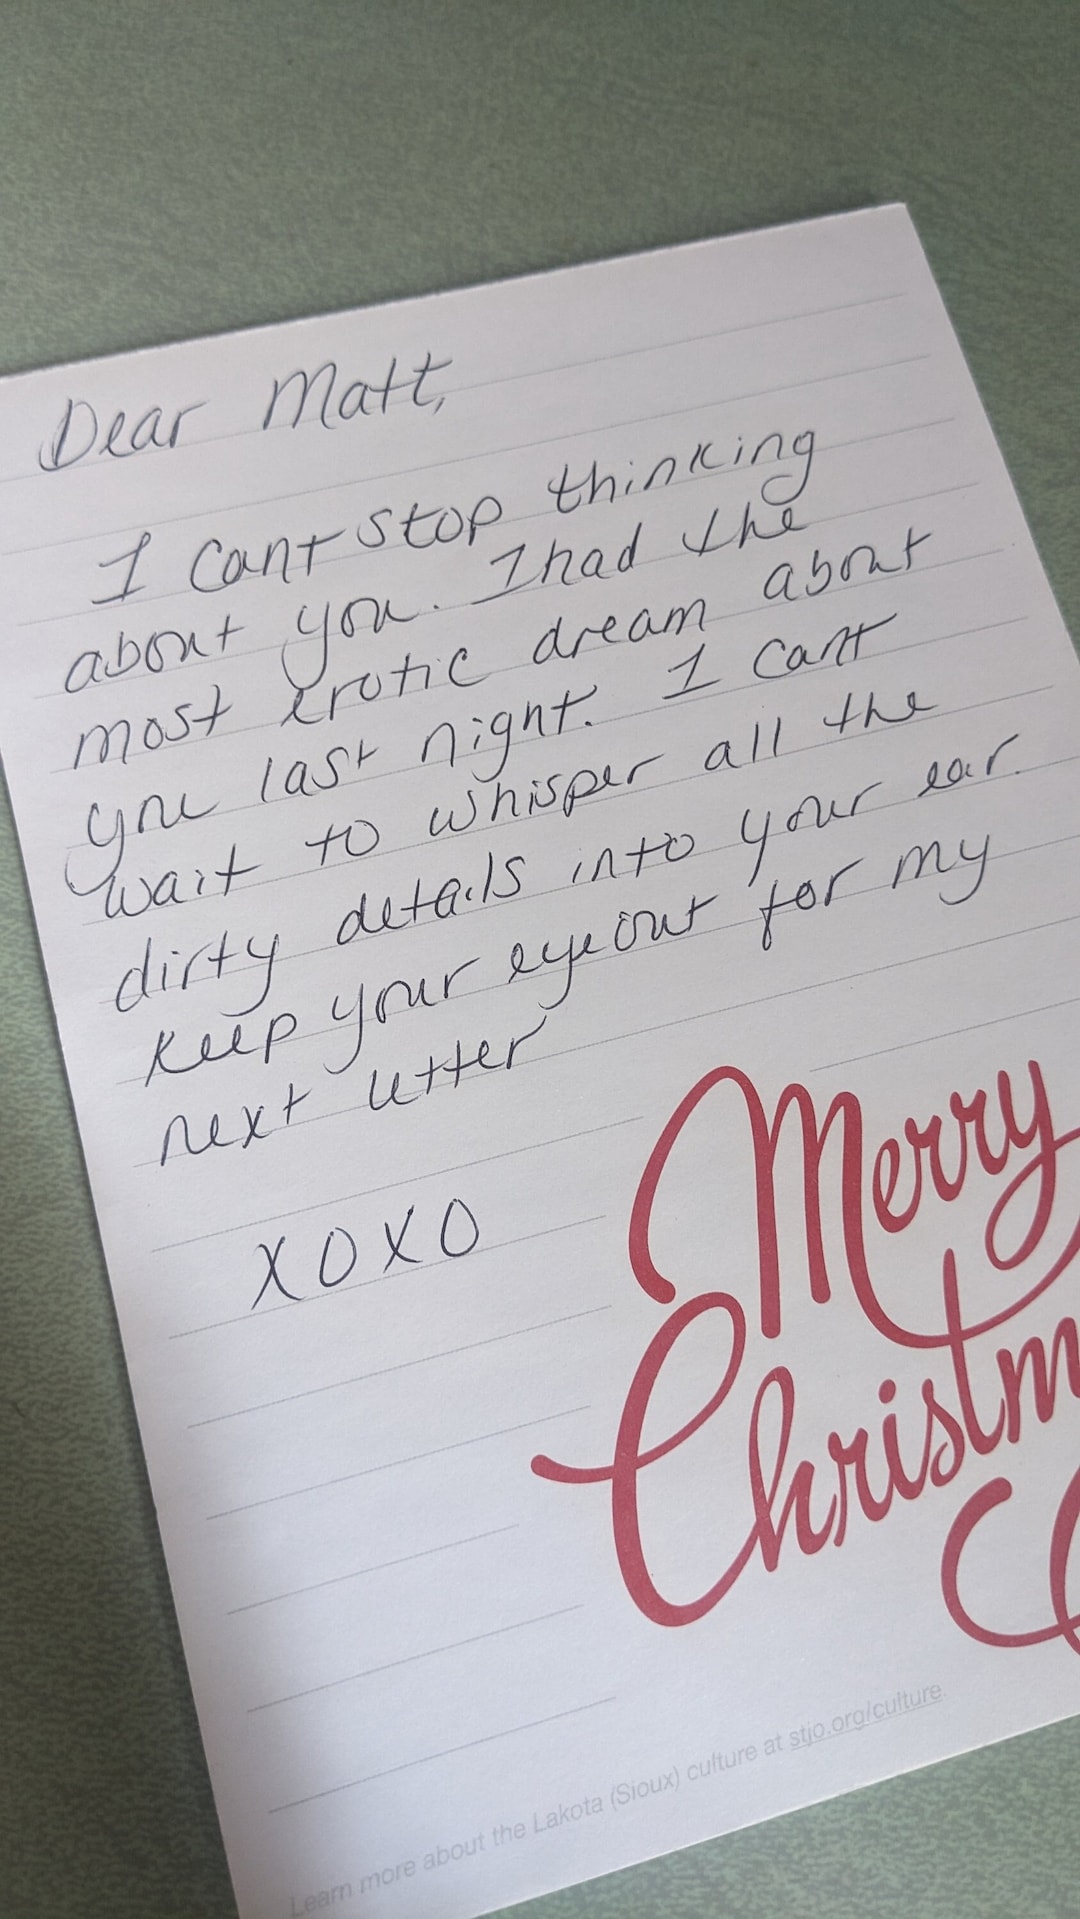 Dear Matt,
I Cant stop thinking
about you. I had the
most erotic dream about
you last night. I cant
wait to whisper all the
dirty details into your ear.
Keep your eye out for my
next letter
XOXO
Merry
Christm
Learn more about the Lakota (Sioux) culture at stjo.org/culture.